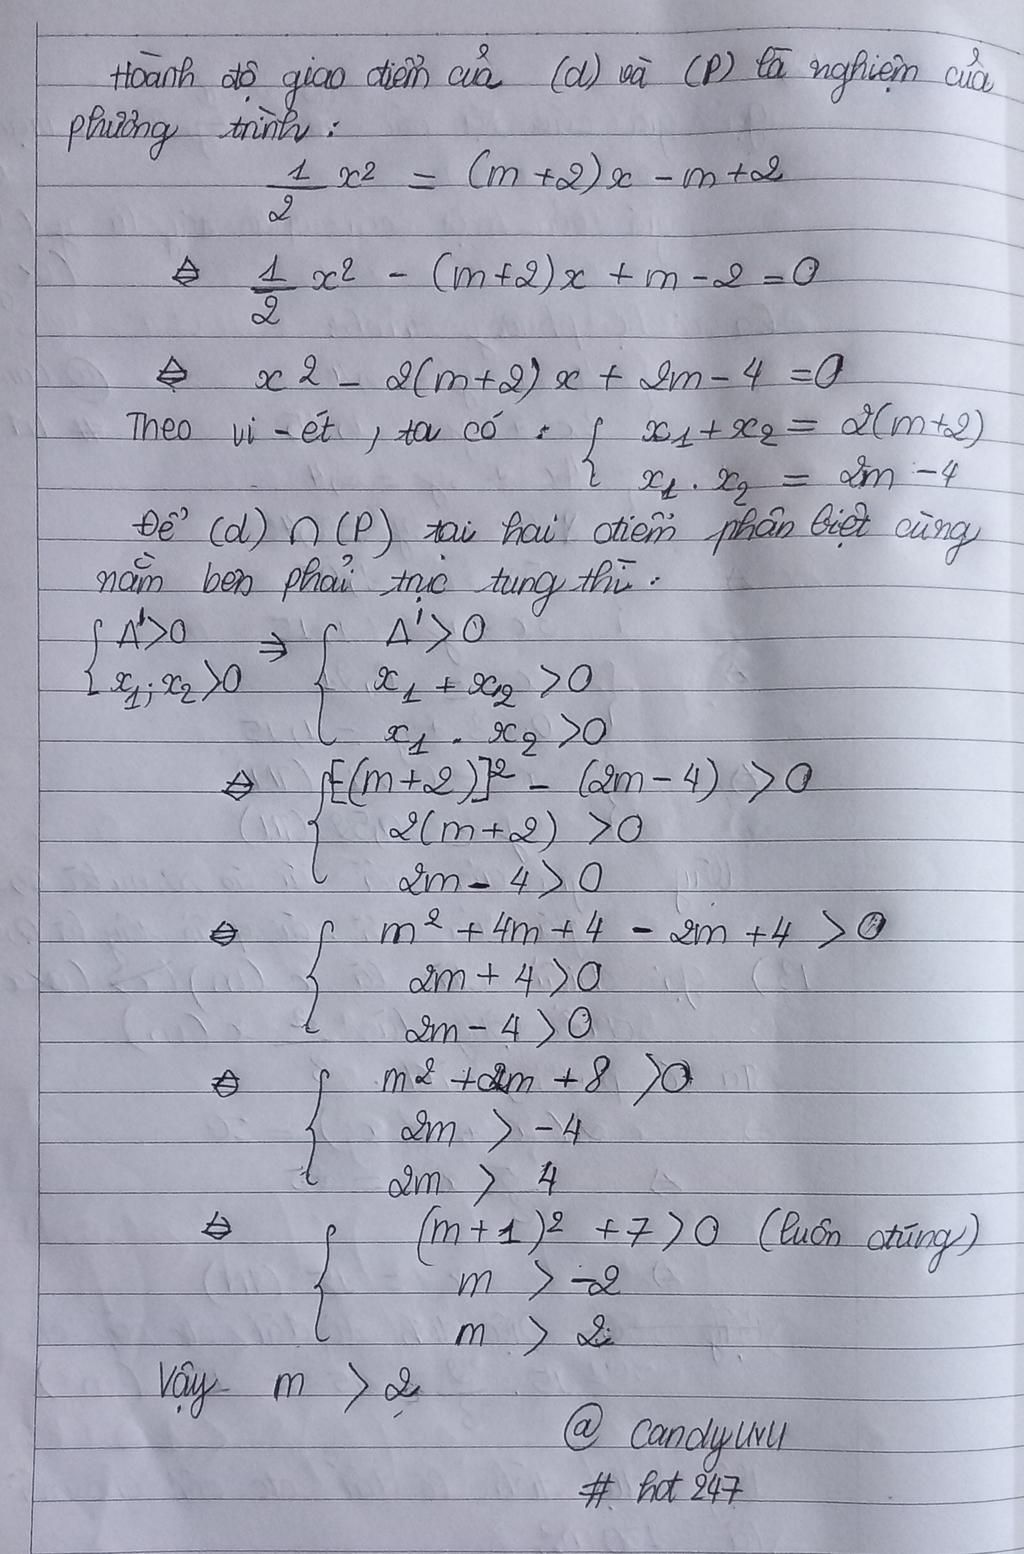 Hoành độ giao điểm của (d) và (P) là nghiệm của
phương trình :
1/2 x² = (m+2)x - m+2
⇔ 1/2 x² - (m+2)x + m - 2 = 0
⇔ x² - 2(m+2)x + 2m - 4 = 0
Theo vi-ét, ta có : { x₁ + x₂ = 2(m+2)
x₁ . x₂ = 2m - 4
Để (d) ∩ (P) tại hai điểm phân biệt cùng
nằm bên phải trục tung thì :
{ Δ' > 0 ⇒ { Δ' > 0
x₁ ; x₂ > 0 x₁ + x₂ > 0
x₁ . x₂ > 0
⇔ { [(m+2)]² - (2m - 4) > 0
2(m+2) > 0
2m - 4 > 0
⇔ { m² + 4m + 4 - 2m + 4 > 0
2m + 4 > 0
2m - 4 > 0
⇔ { m² + 2m + 8 > 0
2m > -4
2m > 4
⇔ { (m+1)² + 7 > 0 (luôn đúng)
m > -2
m > 2
Vậy m > 2
@ candyuvu
# hot 247